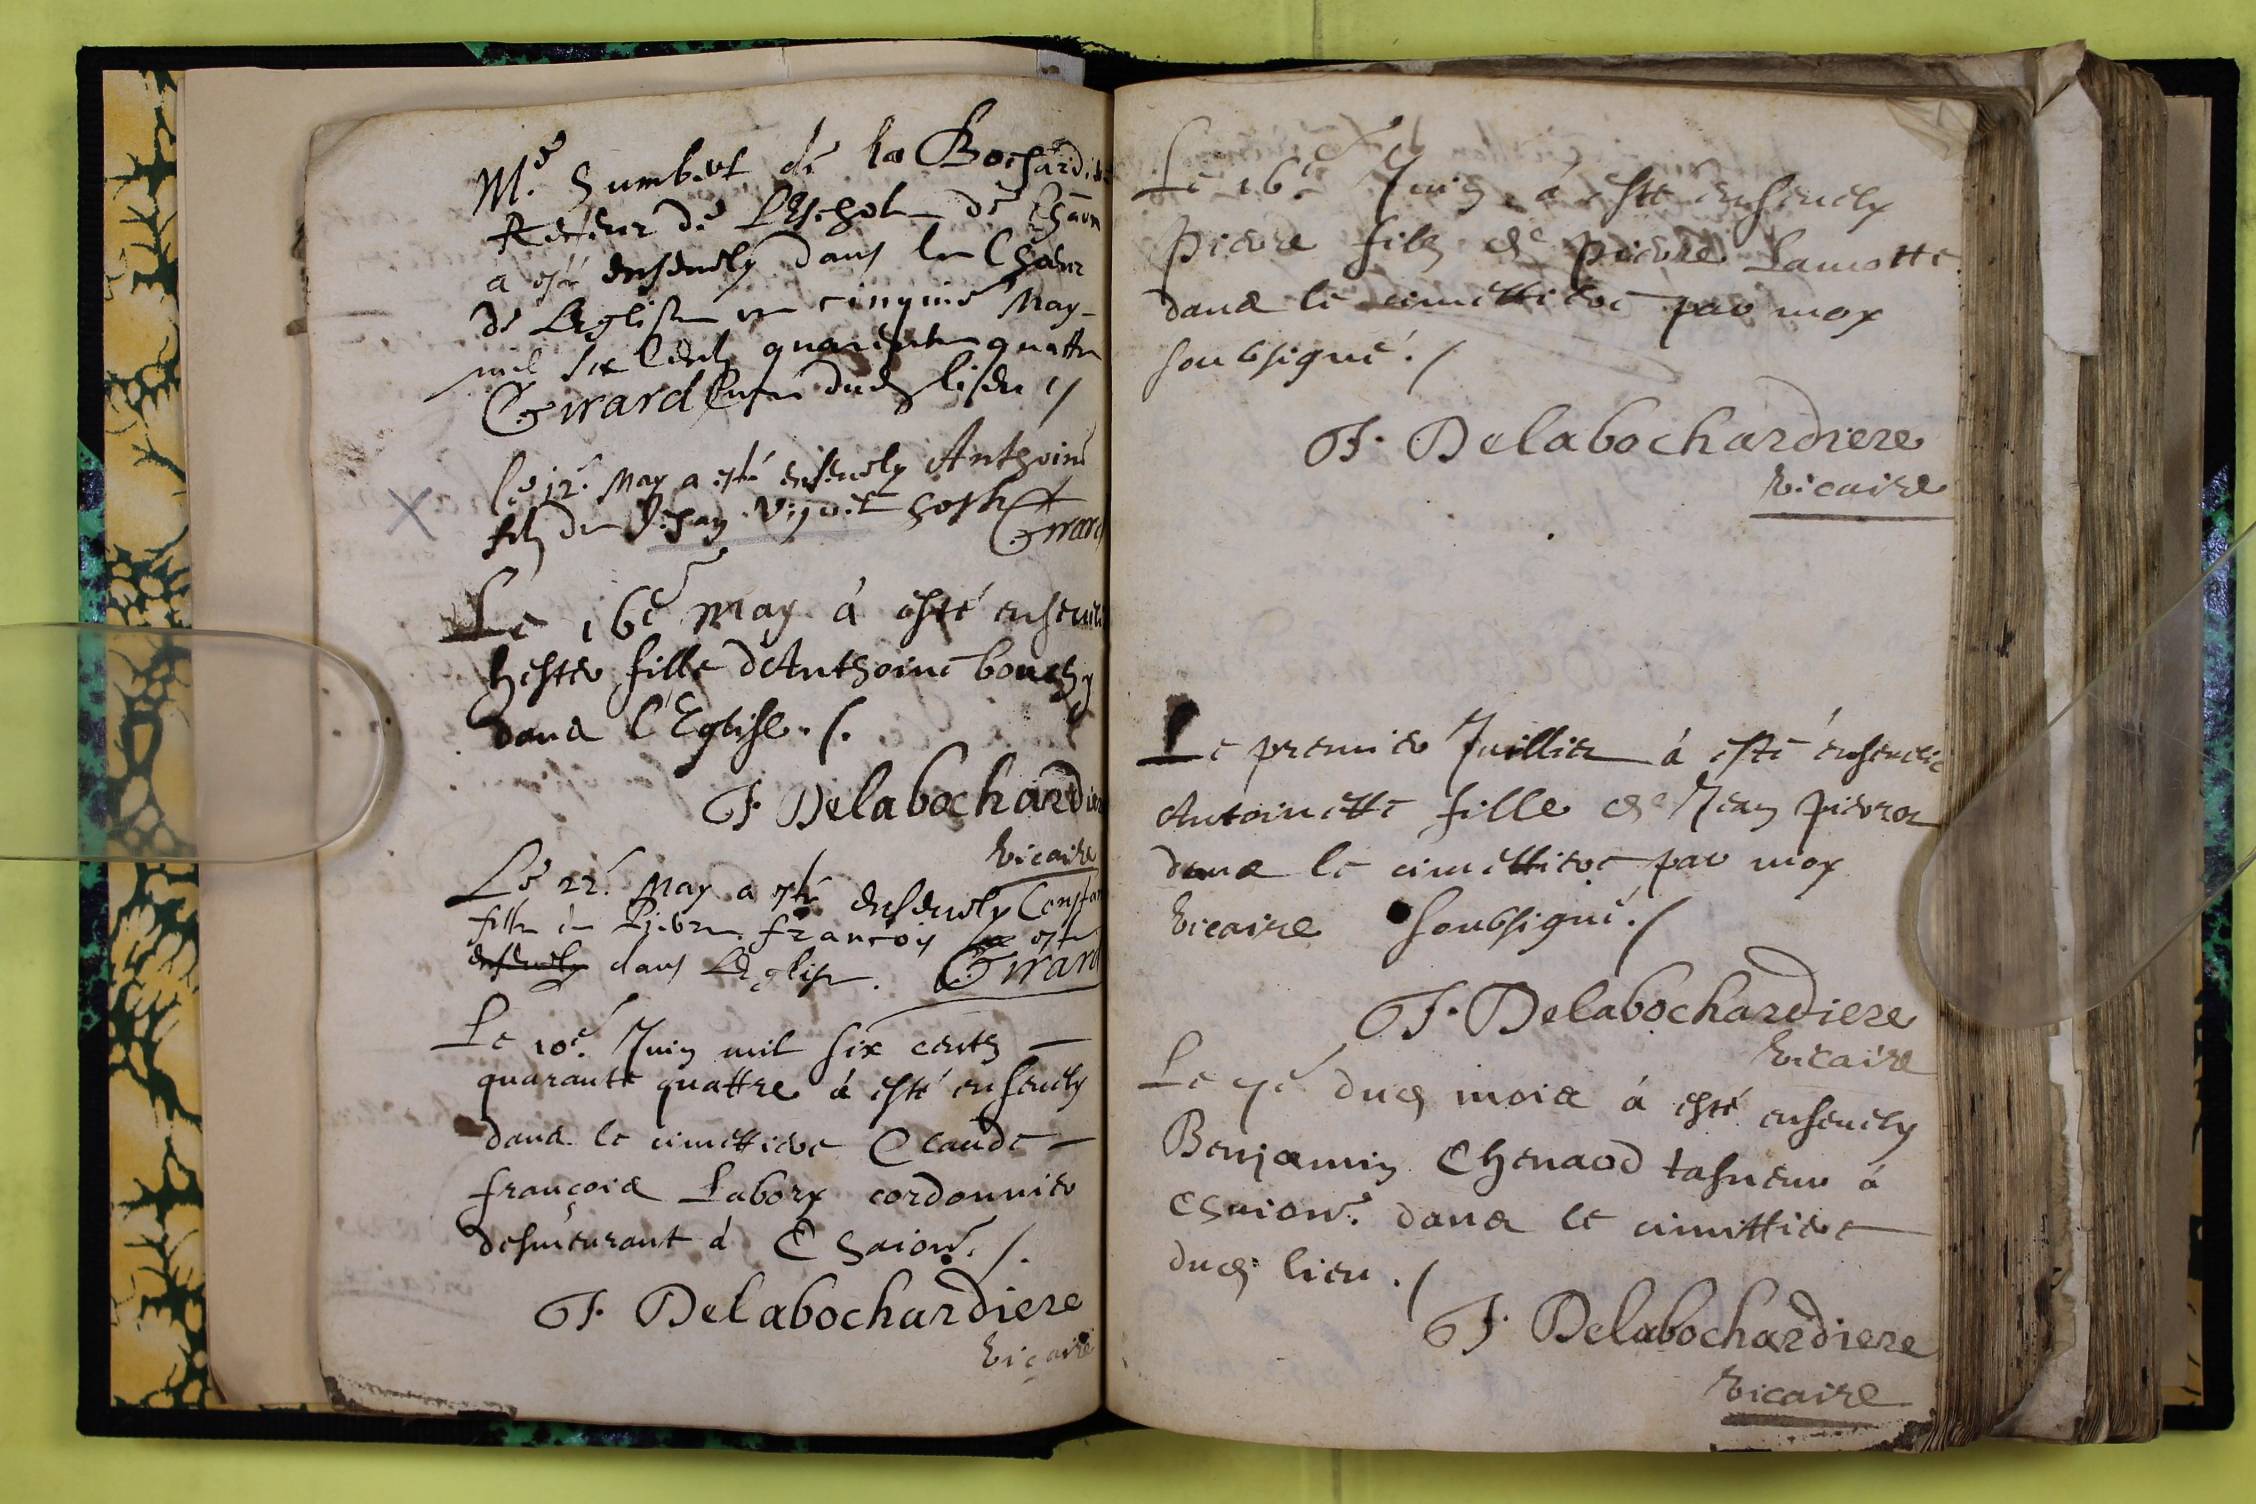 Me. Humbert de la Bochardiere
Recteur de L'Eschole de Chaon
a esté ensevely dans le Choeur
de L'Eglise ce cinquie May
mil six Centz quarente quattre
Girard Curé dud lieu
le 12e. May a esté ensevely Anthoine
filz de Jehan hoste Girard
Le 16e May à esté ensevely
hester fille d'Anthoine bouchy
dans l'Eglise ./.
F. Delabochardiere
Vicaire
Le 22e. May a esté ensevely
fille de Pierre françois
ensevely dans L'Eglise. Girard
Le 10e. Juin mil six centz
quarante quattre à esté ensevely
dans le cimettiere Claude
françois Labory cordonnier
demeurant à Chaion. /.
F. Delabochardiere
Vicaire
Le 16e. Juin à esté ensevely
pierre filz de pierre Lamotte
dans le cimettiere par moy
soubsigné ./
F. Delabochardiere
Vicaire
Le premier Juillier à esté ensevelie
Antoinette fille de Jean pierrot
dans le cimettiere par moy
Vicaire soubsigné ./
F. Delabochardiere
Vicaire
Le dud mois à esté ensevely
Benjamin Chenaod à
Chaion. dans le cimittiere
dud lieu ./
F. Delabochardiere
Vicaire